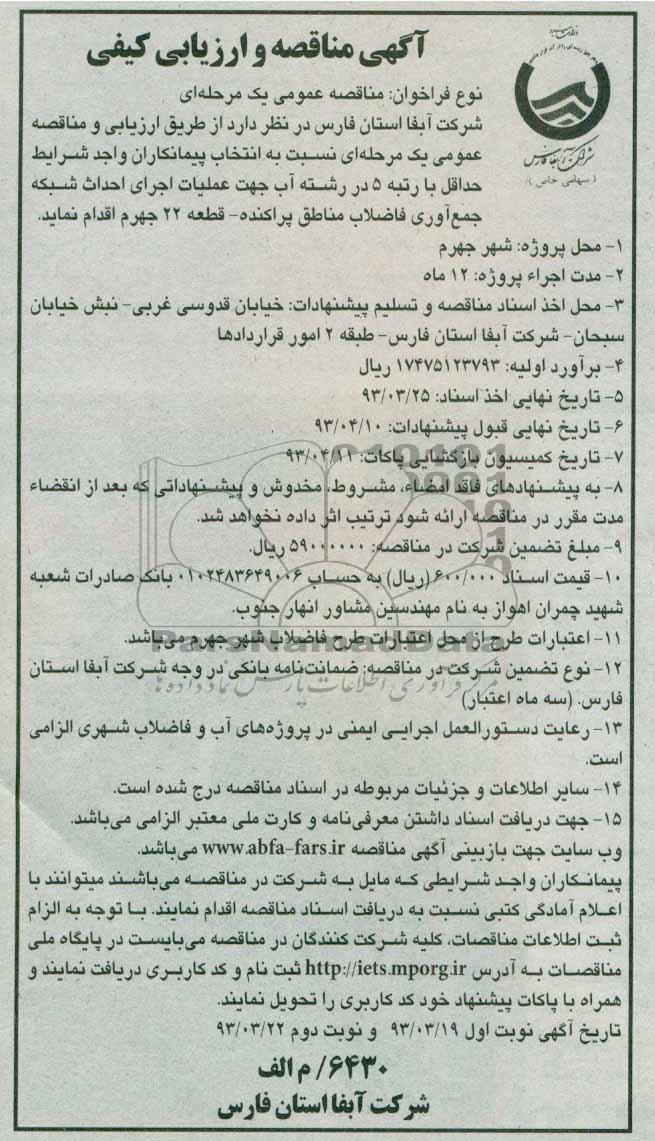 آگهی مناقصه و ارزیابی کیفی
شرکت آبفا فارس
(سهامی خاص)
نوع فراخوان: مناقصه عمومی یک مرحله‌ای
شرکت آبفا استان فارس در نظر دارد از طریق ارزیابی و مناقصه
عمومی یک مرحله‌ای نسبت به انتخاب پیمانکاران واجد شرایط
حداقل با رتبه ۵ در رشته آب جهت عملیات اجرای احداث شبکه
جمع‌آوری فاضلاب مناطق پراکنده- قطعه ۲۲ جهرم اقدام نماید.
۱- محل پروژه: شهر جهرم
۲- مدت اجراء پروژه: ۱۲ ماه
۳- محل اخذ اسناد مناقصه و تسلیم پیشنهادات: خیابان قدوسی غربی- نبش خیابان
سبحان- شرکت آبفا استان فارس- طبقه ۲ امور قراردادها
۴- برآورد اولیه: ۱۷۴۷۵۱۲۳۷۹۳ ریال
۵- تاریخ نهایی اخذ اسناد: ۹۳/۰۳/۲۵
۶- تاریخ نهایی قبول پیشنهادات: ۹۳/۰۴/۱۰
۷- تاریخ کمیسیون بازگشایی پاکات: ۹۳/۰۴/۱۱
۸- به پیشنهادهای فاقد امضاء، مشروط، مخدوش و پیشنهاداتی که بعد از انقضاء
مدت مقرر در مناقصه ارائه شود ترتیب اثر داده نخواهد شد.
۹- مبلغ تضمین شرکت در مناقصه: ۵۹۰۰۰۰۰۰۰ ریال.
۱۰- قیمت اسناد ۶۰۰/۰۰۰ (ریال) به حساب ۰۱۰۲۴۸۳۶۴۹۰۰۶ بانک صادرات شعبه
شهید چمران اهواز به نام مهندسین مشاور انهار جنوب.
۱۱- اعتبارات طرح از محل اعتبارات طرح فاضلاب شهر جهرم می‌باشد.
ParsNamadData
۱۲- نوع تضمین شرکت در مناقصه: ضمانت‌نامه بانکی در وجه شرکت آبفا استان
مرکز فرآوری اطلاعات پارس نماد داده ها
فارس. (سه ماه اعتبار)
۱۳- رعایت دستورالعمل اجرایی ایمنی در پروژه‌های آب و فاضلاب شهری الزامی
است.
۱۴- سایر اطلاعات و جزئیات مربوطه در اسناد مناقصه درج شده است.
۱۵- جهت دریافت اسناد داشتن معرفی‌نامه و کارت ملی معتبر الزامی می‌باشد.
وب سایت جهت بازبینی آگهی مناقصه www.abfa-fars.ir می‌باشد.
پیمانکاران واجد شرایطی که مایل به شرکت در مناقصه می‌باشند میتوانند با
اعلام آمادگی کتبی نسبت به دریافت اسناد مناقصه اقدام نمایند. با توجه به الزام
ثبت اطلاعات مناقصات، کلیه شرکت کنندگان در مناقصه می‌بایست در پایگاه ملی
مناقصات به آدرس http://iets.mporg.ir ثبت نام و کد کاربری دریافت نمایند و
همراه با پاکات پیشنهاد خود کد کاربری را تحویل نمایند.
تاریخ آگهی نوبت اول ۹۳/۰۳/۱۹ و نوبت دوم ۹۳/۰۳/۲۲
۶۴۳۰/ م الف
شرکت آبفا استان فارس